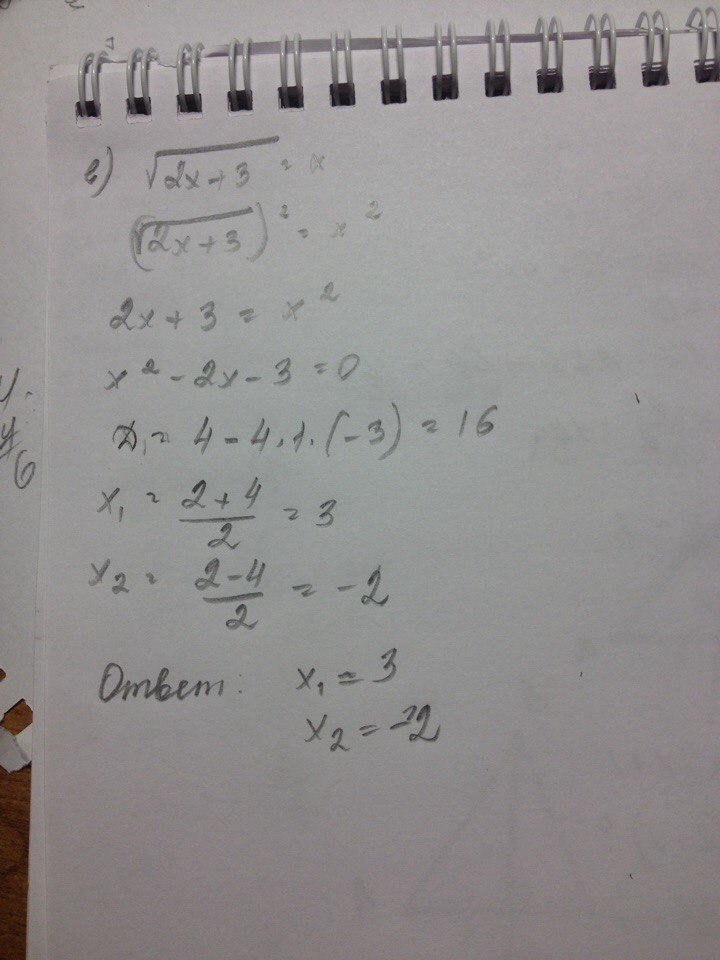 в) √(2x+3) = x
(√(2x+3))² = x²
2x + 3 = x²
x² - 2x - 3 = 0
D₁ = 4 - 4·1·(-3) = 16
x₁ = (2+4)/2 = 3
x₂ = (2-4)/2 = -2
Ответ: x₁ = 3
x₂ = -2